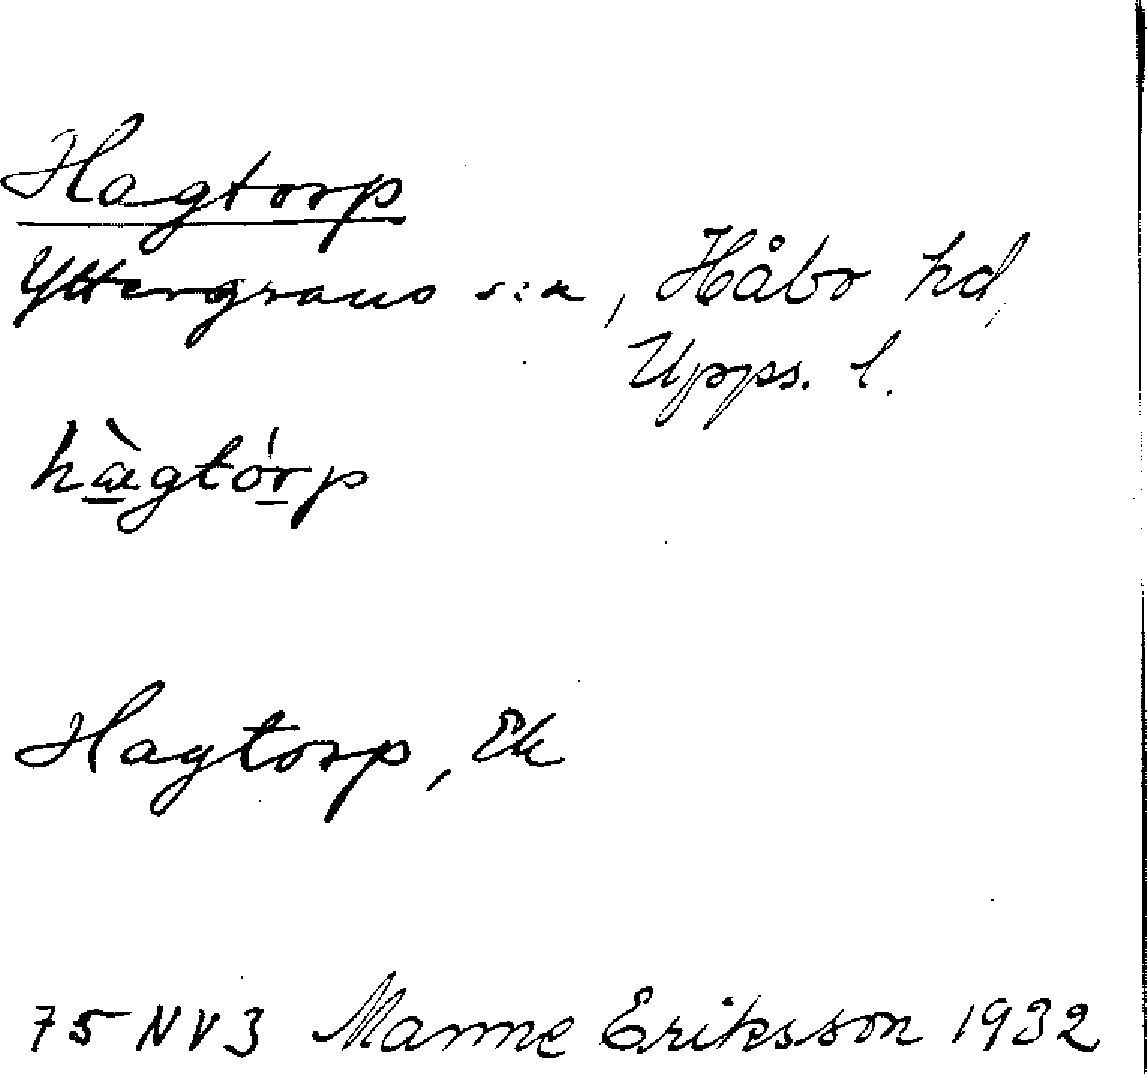 Hagtorp
Yttergrans s:n, Håbo hd,
Upps. l.
hàgtórp
Hagtorp, Ek
75 NV3 Manne Eriksson 1932